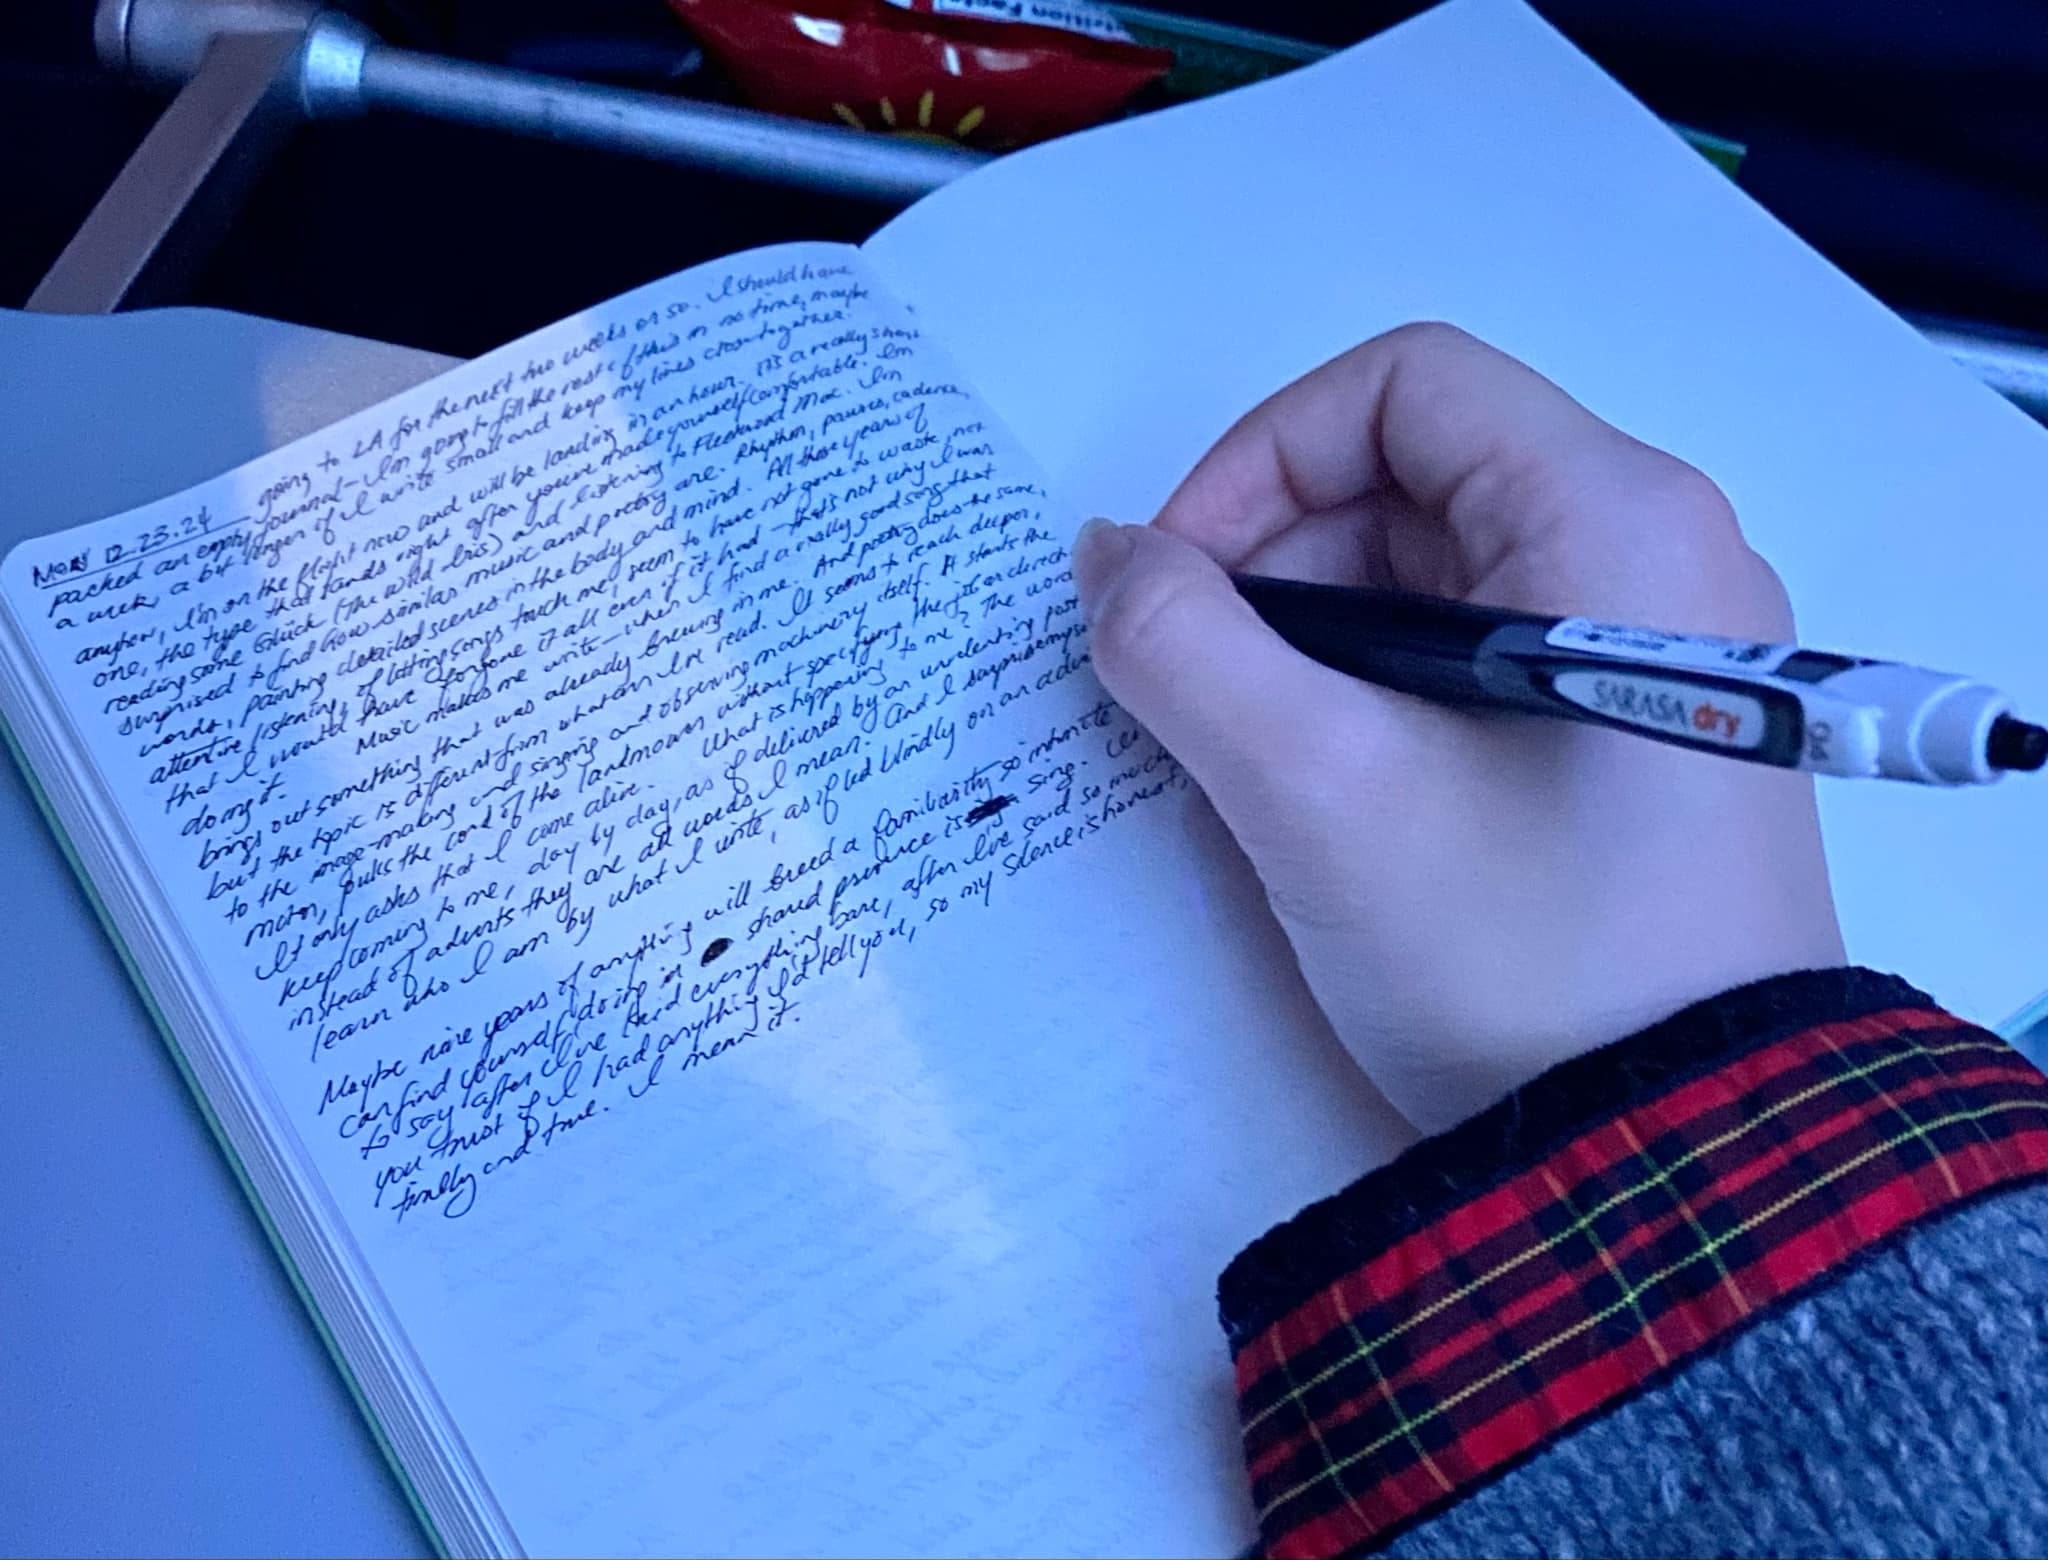 Nutrition Facts
MON 12.23.24 going to LA for the next two weeks or so. I should have
packed an empty journal - I'm going to fill the rest of this in no time, maybe
a week, a bit longer if I write small and keep my lines close together.
anyhow, I'm on the flight now and will be landing in an hour. It's a really short
one, the type that lands right after you've made yourself comfortable. I'm
reading some Glück (The Wild Iris) and listening to Fleetwood Mac. I'm
surprised to find how similar music and poetry are. Rhythm, pauses, cadence,
words, painting detailed scenes in the body and mind. All those years of
attentive listening, of letting songs touch me, seem to have not gone to waste, not
that I would have forgone it all even if it had - that's not why I was
doing it. Music makes me write - when I find a really good song that
brings out something that was already brewing in me. And poetry does the same,
but the topic is different from what I've read. It seems to reach deeper,
to the image-making and singing and observing machinery itself. It starts the
motor, pulls the cord of the lawnmower without specifying the
It only asks that I come alive. What is happening to me? The words
keep coming to me, day by day, as if delivered by an unrelenting post
instead of adverts they are all words I mean. And I surprise
learn who I am by what I write, as if led blindly on an
Maybe nine years of anything will breed a familiarity so infinite
can find yourself doing in shared presence is sing.
to say after I've laid everything bare, after I've said so much
you trust if I had anything I'd tell you, so my silence is honest,
finally and true. I mean it.
SARASA dry
0.4